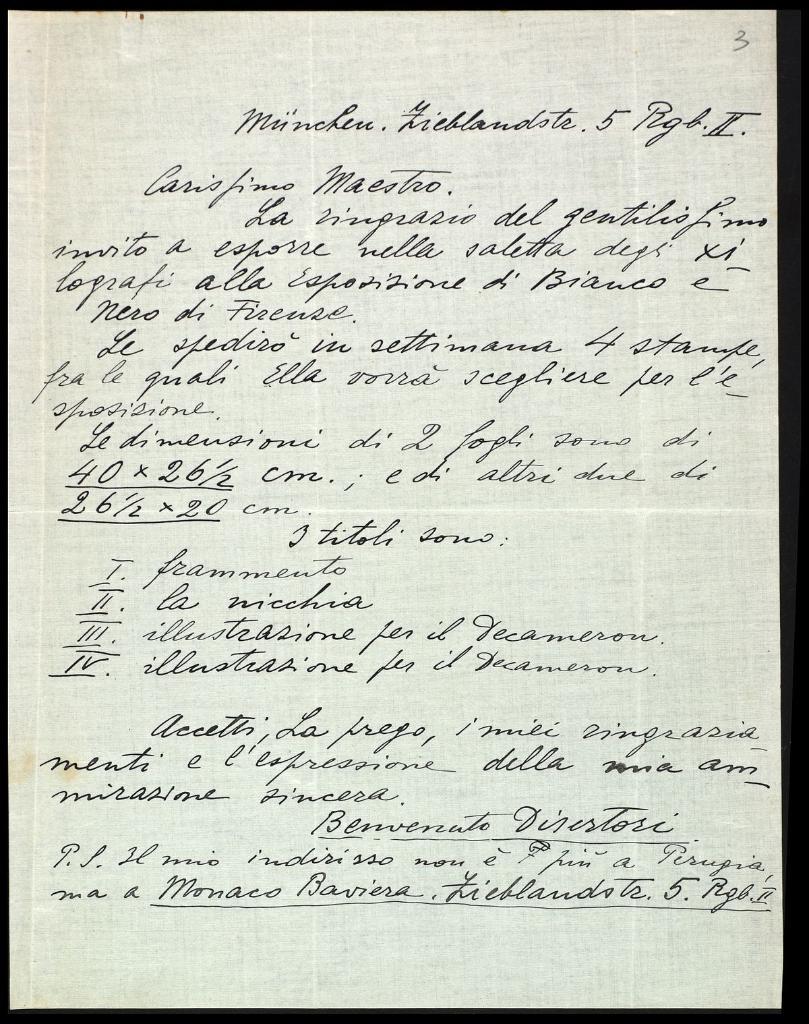 3
München. Zieblandstr. 5 Rgb. II.
Carissimo Maestro.
La ringrazio del gentilissimo
invito a esporre nella saletta degi xi-
lografi alla Esposizione di Bianco e
Nero di Firenze.
Le spedirò in settimana 4 stampe,
fra le quali Ella vorrà scegliere per l'e-
sposizione.
Le dimensioni di 2 fogli sono di
40 × 26 1/2 cm. ; e di altri due di
26 1/2 × 20 cm.
I titoli sono:
I. frammento
II. la nicchia
III. illustrazione per il Decameron.
IV. illustrazione per il Decameron.
Accetti, La prego, i miei ringrazia-
menti e l'espressione della mia am-
mirazione sincera.
Benvenuto Disertori
P.S. Il mio indirizzo non è più a Perugia,
ma a Monaco Baviera. Zieblandstr. 5. Rgb. II